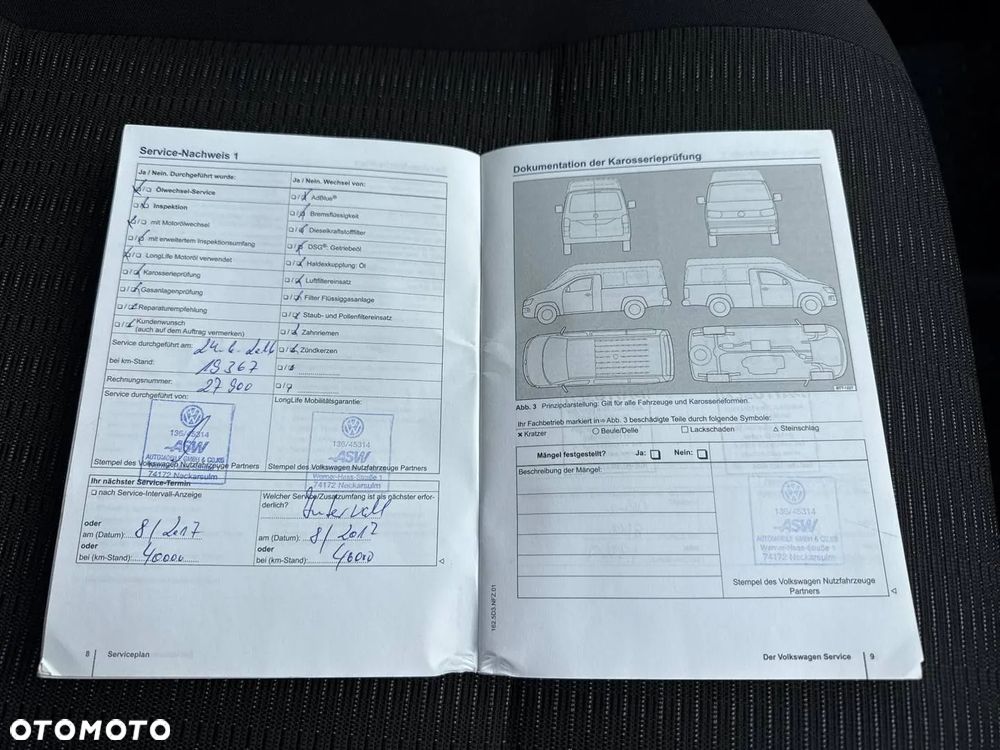 Service-Nachweis 1
Ja / Nein. Durchgeführt wurde:
Ja / Nein. Wechsel von:
Ölwechsel-Service
Inspektion
mit Motorölwechsel
mit erweitertem Inspektionsumfang
LongLife Motoröl verwendet
Karosserieprüfung
Gasanlagenprüfung
Reparaturempfehlung
Kundenwunsch
(auch auf dem Auftrag vermerken)
AdBlue®
Bremsflüssigkeit
Dieselkraftstofffilter
DSG®: Getriebeöl
Haldexkupplung: Öl
Luftfiltereinsatz
Filter Flüssiggasanlage
Staub- und Pollenfiltereinsatz
Zahnriemen
Zündkerzen
Service durchgeführt am:
bei km-Stand: 19367
Rechnungsnummer: 27900
Service durchgeführt von:
LongLife Mobilitätsgarantie:
136/45314
ASW
AUTOMOBILE GMBH & CO.KG
74172 Neckarsulm
136/45314
ASW
Werner-Haas-Straße 1
74172 Neckarsulm
Stempel des Volkswagen Nutzfahrzeuge Partners
Stempel des Volkswagen Nutzfahrzeuge Partners
Ihr nächster Service-Termin
nach Service-Intervall-Anzeige
oder
am (Datum): 8/2017
oder
bei (km-Stand): 40000
Welcher Service/Zusatzumfang ist als nächster erfor-
derlich? Intervall
am (Datum): 8/2017
oder
bei (km-Stand): 40000
8 Serviceplan
Dokumentation der Karosserieprüfung
Abb. 3 Prinzipdarstellung: Gilt für alle Fahrzeuge und Karosserieformen.
Ihr Fachbetrieb markiert in ⇒ Abb. 3 beschädigte Teile durch folgende Symbole:
x Kratzer ○ Beule/Delle □ Lackschaden △ Steinschlag
Mängel festgestellt? Ja: Nein:
Beschreibung der Mängel:
136/45314
ASW
AUTOMOBILE GMBH & CO.KG
Werner-Haas-Straße 1
74172 Neckarsulm
Stempel des Volkswagen Nutzfahrzeuge
Partners
162.5D3.NFZ.01
Der Volkswagen Service 9
OTOMOTO